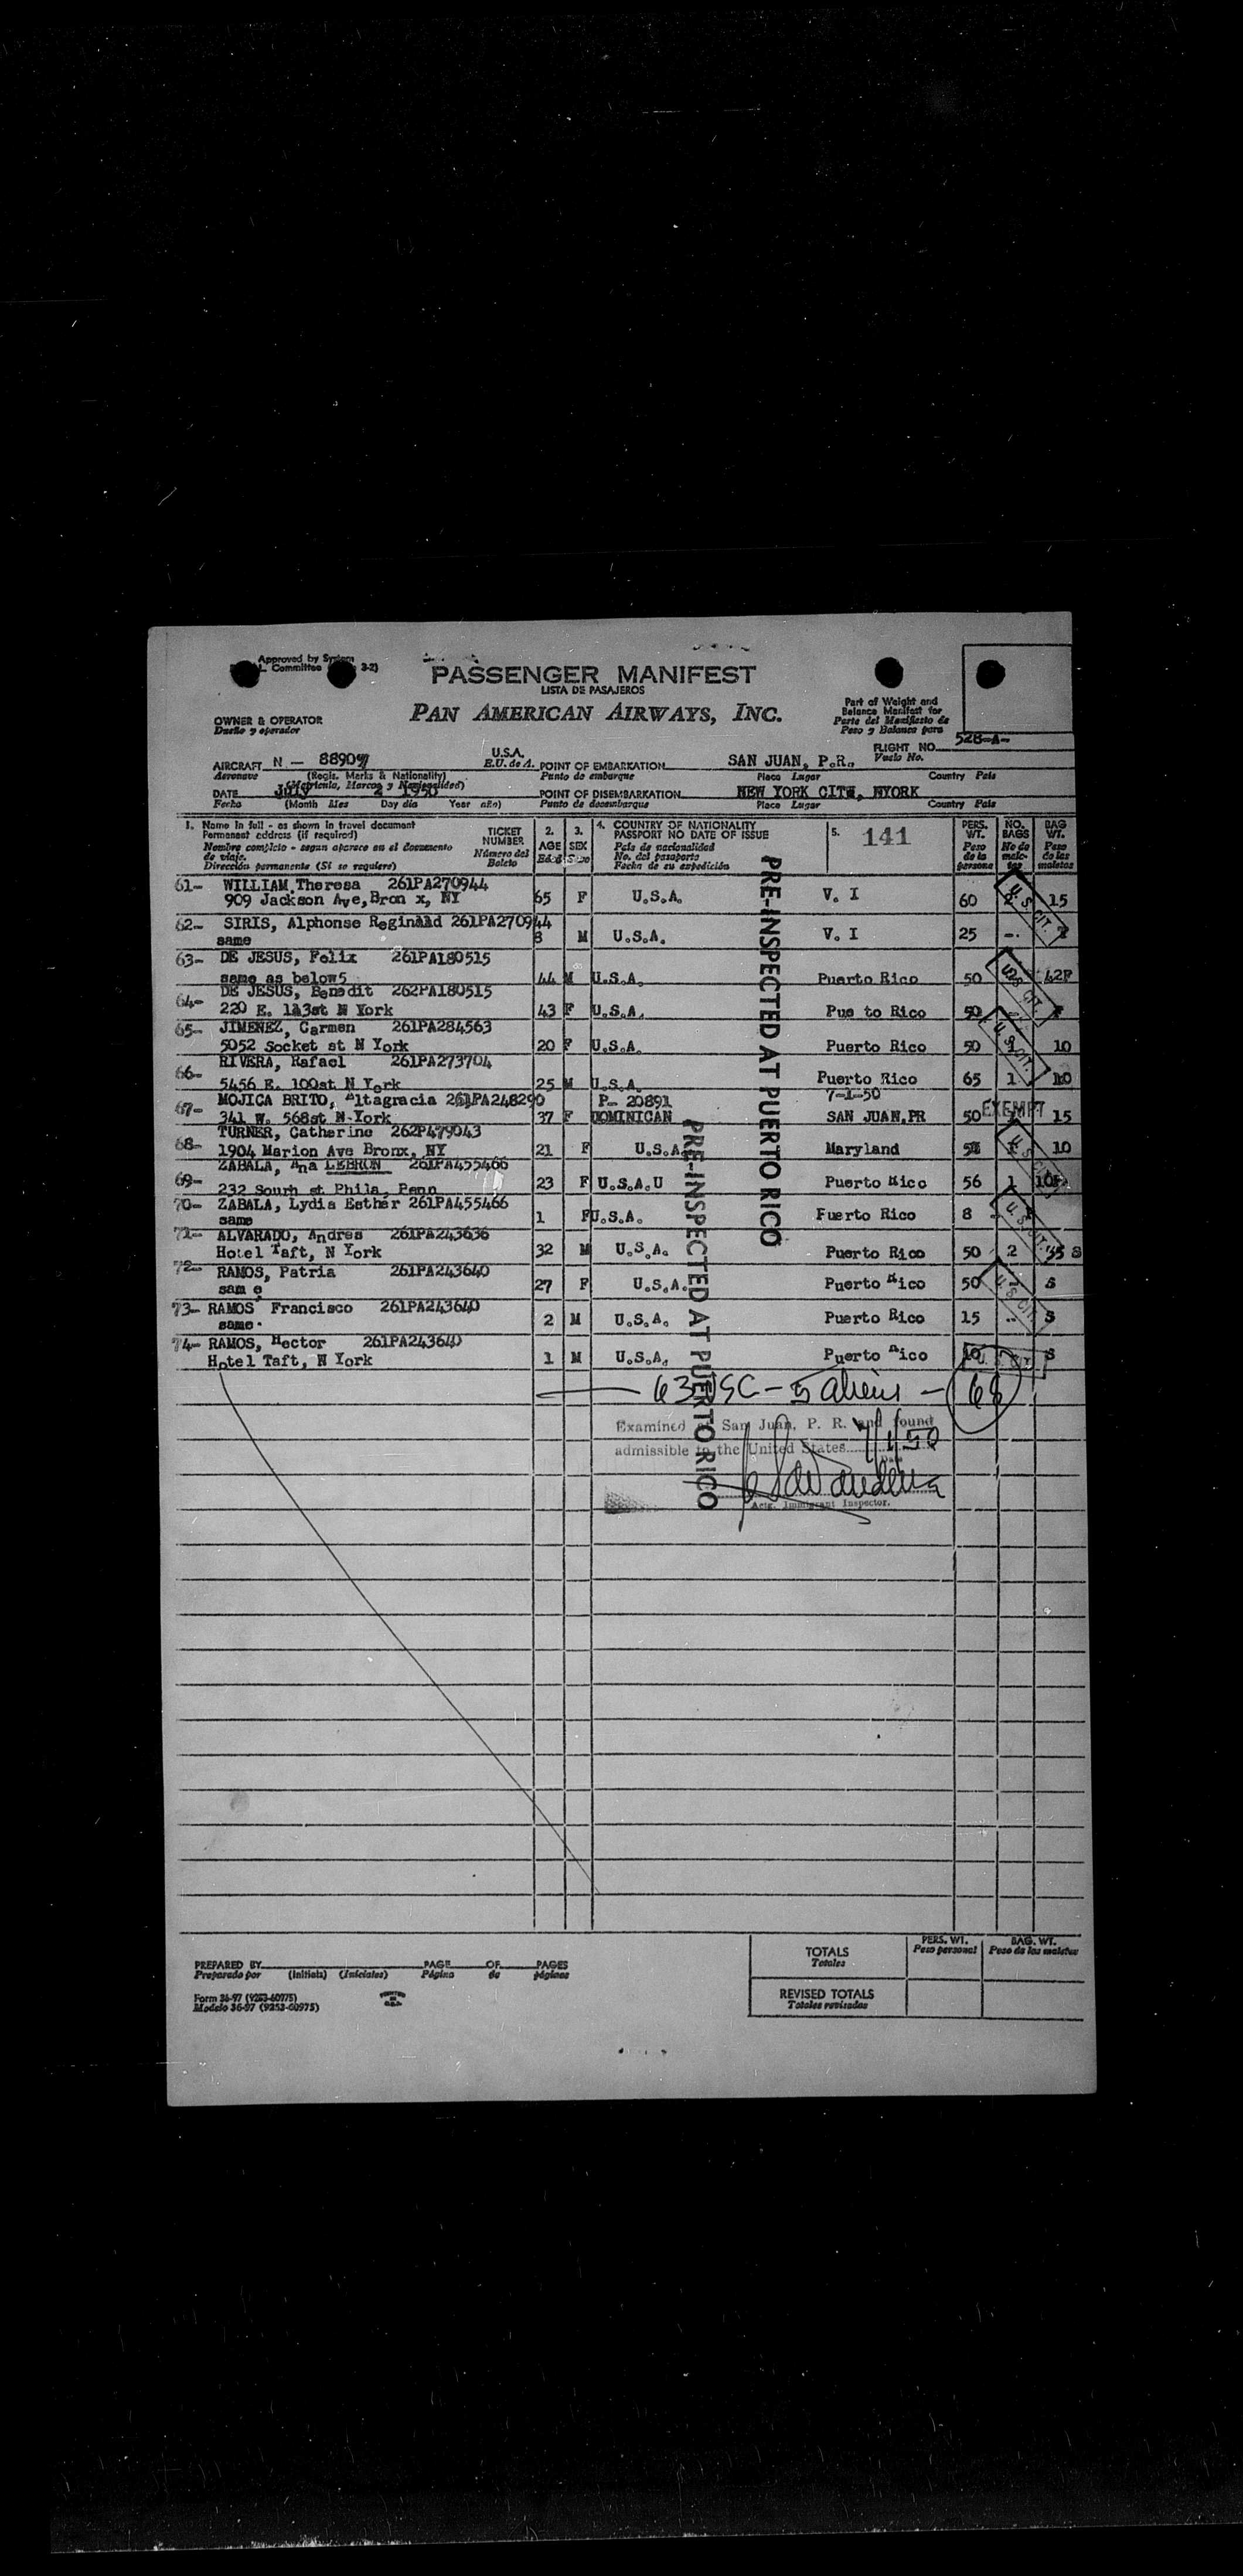 Approved by System
Committee 3-2)
PASSENGER MANIFEST
LISTA DE PASAJEROS
PAN AMERICAN AIRWAYS, INC.
Part of Weight and
Balance Manifest for
Parte del Manifiesto de
Peso y Balance para
OWNER & OPERATOR
Dueño y operador
FLIGHT NO. 528-A-
Vuelo No.
AIRCRAFT N - 8890 U.S.A. POINT OF EMBARKATION SAN JUAN, P.R.,
Aeronave (Regis. Marks & Nationality) E.U. de A. Punto de embarque Place Lugar Country Pais
(Matricula, Marcas y Nacionalidad)
DATE July 2 1950 POINT OF DISEMBARKATION NEW YORK CITY, NYORK
Fecha (Month Mes Day dia Year año) Punto de desembarque Place Lugar Country Pais
1. Name in full - as shown in travel document
Permanent address (if required)
Nombre completo - segun aparece en el documento
de viaje.
Dirección permanente (Si se requiere)
TICKET NUMBER
Número del Boleto
2. AGE Edad
3. SEX Sexo
4. COUNTRY OF NATIONALITY
PASSPORT NO DATE OF ISSUE
País de nacionalidad
No. del pasaporte
Fecha de su expedición
5. 141
PERS. WT. Peso de la persona
NO. BAGS No de maletas
BAG WT. Peso de las maletas
61- WILLIAM, Theresa 261PA270944
909 Jackson Ave, Bron x, NY 65 F U.S.A. V. I 60 15
62- SIRIS, Alphonse Reginald 261PA270944
same 8 M U.S.A. V. I 25 -.
63- DE JESUS, Felix 261PA180515
same as below5 44 M U.S.A. Puerto Rico 50 42P
64- DE JESUS, Benedit 262PA180515
220 E. 113st N York 43 F U.S.A. Pue to Rico 50
65- JIMENEZ, Carmen 261PA284563
5052 Socket st N York 20 F U.S.A. Puerto Rico 50 1 10
66- RIVERA, Rafael 261PA273704
5456 E. 100st N York 25 M U.S.A Puerto Rico 65 1 10
67- MOJICA BRITO, Altagracia 261PA248290 P- 20891 7-1-50
341 W. 568st N-York 37 F DOMINICAN SAN JUAN,PR 50 EXEMPT 15
68- TURNER, Catherine 262P479043
1904 Marion Ave Bronx, NY 21 F U.S.A. Maryland 10
69- ZABALA, Ana LEBRON 261PA455466
232 Sourh st Phila, Penn 23 F U.S.A.U Puerto Rico 56 1
70- ZABALA, Lydia Esther 261PA455466
same 1 F U.S.A. Fuerto Rico 8
71- ALVARADO, Andres 261PA243636
Hotel Taft, N York 32 M U.S.A. Puerto Rico 50 2 S
72- RAMOS, Patria 261PA243640
sam e 27 F U.S.A. Puerto Rico 50 S
73- RAMOS Francisco 261PA243640
same. 2 M U.S.A. Puerto Rico 15 -. S
74- RAMOS, Hector 261PA243640
Hotel Taft, N York 1 M U.S.A. Puerto Rico 10 S
U. S. CIT.
U. S. CIT.
U. S. CIT.
U. S. CIT.
U. S. CIT.
U. S. CIT.
U. S. CIT.
PRE-INSPECTED AT PUERTO RICO
PRE-INSPECTED AT PUERTO RICO
63 USC - 5 aliens - 68
Examined at San Juan, P. R. and found
admissible to the United States 7/1/50
Actg. Immigrant Inspector.
TOTALS
Totales
PERS. WT.
Peso personal
BAG. WT.
Peso de las maletas
REVISED TOTALS
Totales revisados
PREPARED BY PAGE OF PAGES
Preparado por (Initials) (Iniciales) Página de páginas
Form 36-97 (9253-60975)
Modelo 36-97 (9253-60975)
PRINTED IN U.S.A.